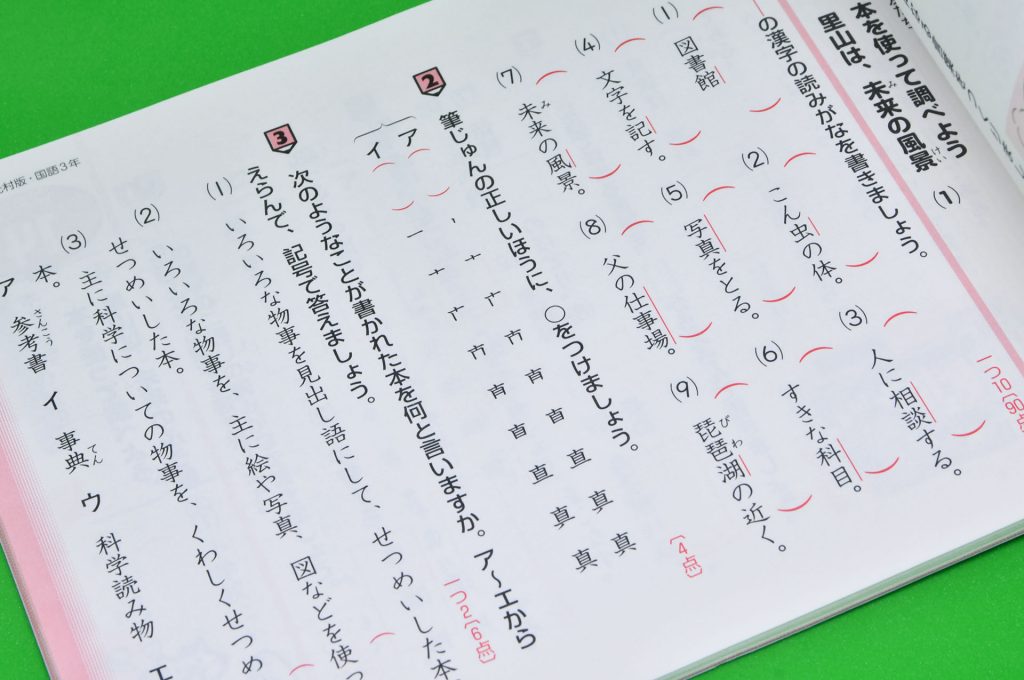 本を使って調べよう
里山は、未来の風景 (1)
の漢字の読みがなを書きましょう。
一つ10〔90点
(1) 図書館
(2) こん虫の体。
(3) 人に相談する。
(4) 文字を記す。
(5) 写真をとる。
(6) すきな科目。
(7) 未来の風景。
(8) 父の仕事場。
(9) 琵琶湖の近く。
2 筆じゅんの正しいほうに、○をつけましょう。
〔4点〕
ア
イ
3 次のようなことが書かれた本を何と言いますか。ア〜エから
えらんで、記号で答えましょう。
一つ2〔6点〕
(1) いろいろな物事を見出し語にして、せつめいした本
(2) いろいろな物事を、主に絵や写真、図などを使っ
せつめいした本。
(3) 主に科学についての物事を、くわしくせつめ
本。
ア 参考書 イ 事典 ウ 科学読み物 エ
村版・国語3年